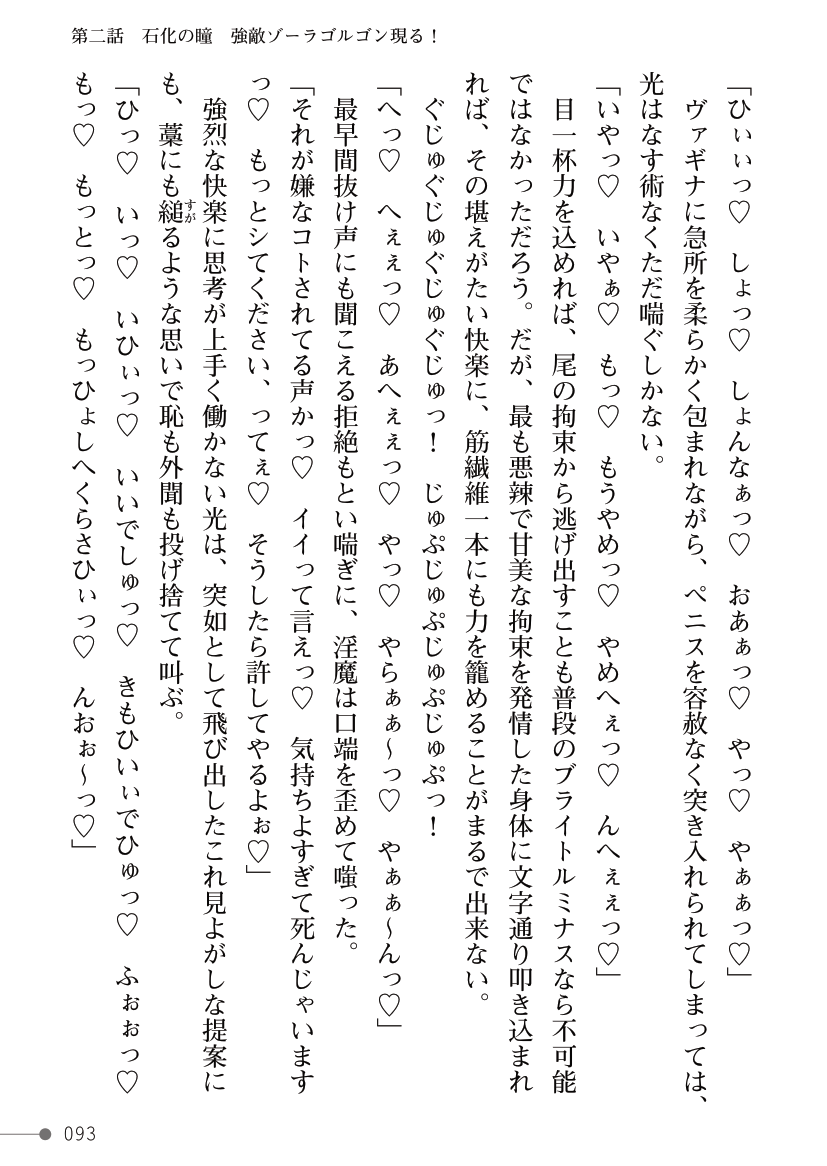 第二話　石化の瞳　強敵ゾーラゴルゴン現る！
「ひぃぃっ♡　しょっ♡　しょんなぁっ♡　おあぁっ♡　やっ♡　やぁぁっ♡」
　ヴァギナに急所を柔らかく包まれながら、ペニスを容赦なく突き入れられてしまっては、
光はなす術なくただ喘ぐしかない。
「いやっ♡　いやぁ♡　もっ♡　もうやめっ♡　やめへぇっ♡　んへぇぇっ♡」
　目一杯力を込めれば、尾の拘束から逃げ出すことも普段のブライトルミナスなら不可能
ではなかっただろう。だが、最も悪辣で甘美な拘束を発情した身体に文字通り叩き込まれ
れば、その堪えがたい快楽に、筋繊維一本にも力を籠めることがまるで出来ない。
　ぐじゅぐじゅぐじゅぐじゅっ！　じゅぷじゅぷじゅぷじゅぷっ！
「へっ♡　へぇぇっ♡　あへぇぇっ♡　やっ♡　やらぁぁ～っ♡　やぁぁ～んっ♡」
　最早間抜け声にも聞こえる拒絶もとい喘ぎに、淫魔は口端を歪めて嗤った。
「それが嫌なコトされてる声かっ♡　イイって言えっ♡　気持ちよすぎて死んじゃいます
っ♡　もっとシてください、ってぇ♡　そうしたら許してやるよぉ♡」
　強烈な快楽に思考が上手く働かない光は、突如として飛び出したこれ見よがしな提案に
も、藁にも縋すがるような思いで恥も外聞も投げ捨てて叫ぶ。
「ひっ♡　いっ♡　いひぃっ♡　いいでしゅっ♡　きもひいぃでひゅっ♡　ふぉぉっ♡
もっ♡　もっとっ♡　もっひょしへくらさひぃっ♡　んおぉ～っ♡」
093